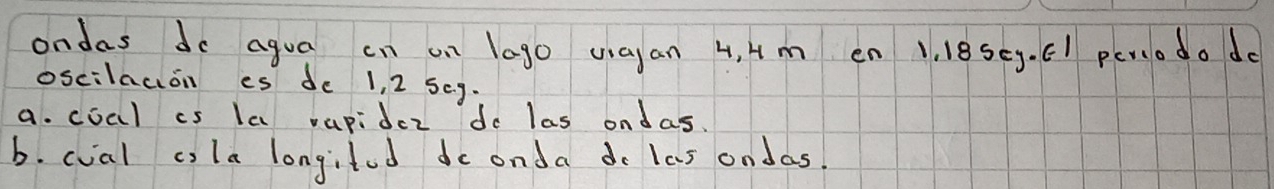 ondas de agua en un lago viajan 4,4 m en 1.18 seg. El periodo de
oscilación es de 1,2 seg.
a. cúal es la rapidez de las ondas.
b. cúal es la longitud de onda de las ondas.